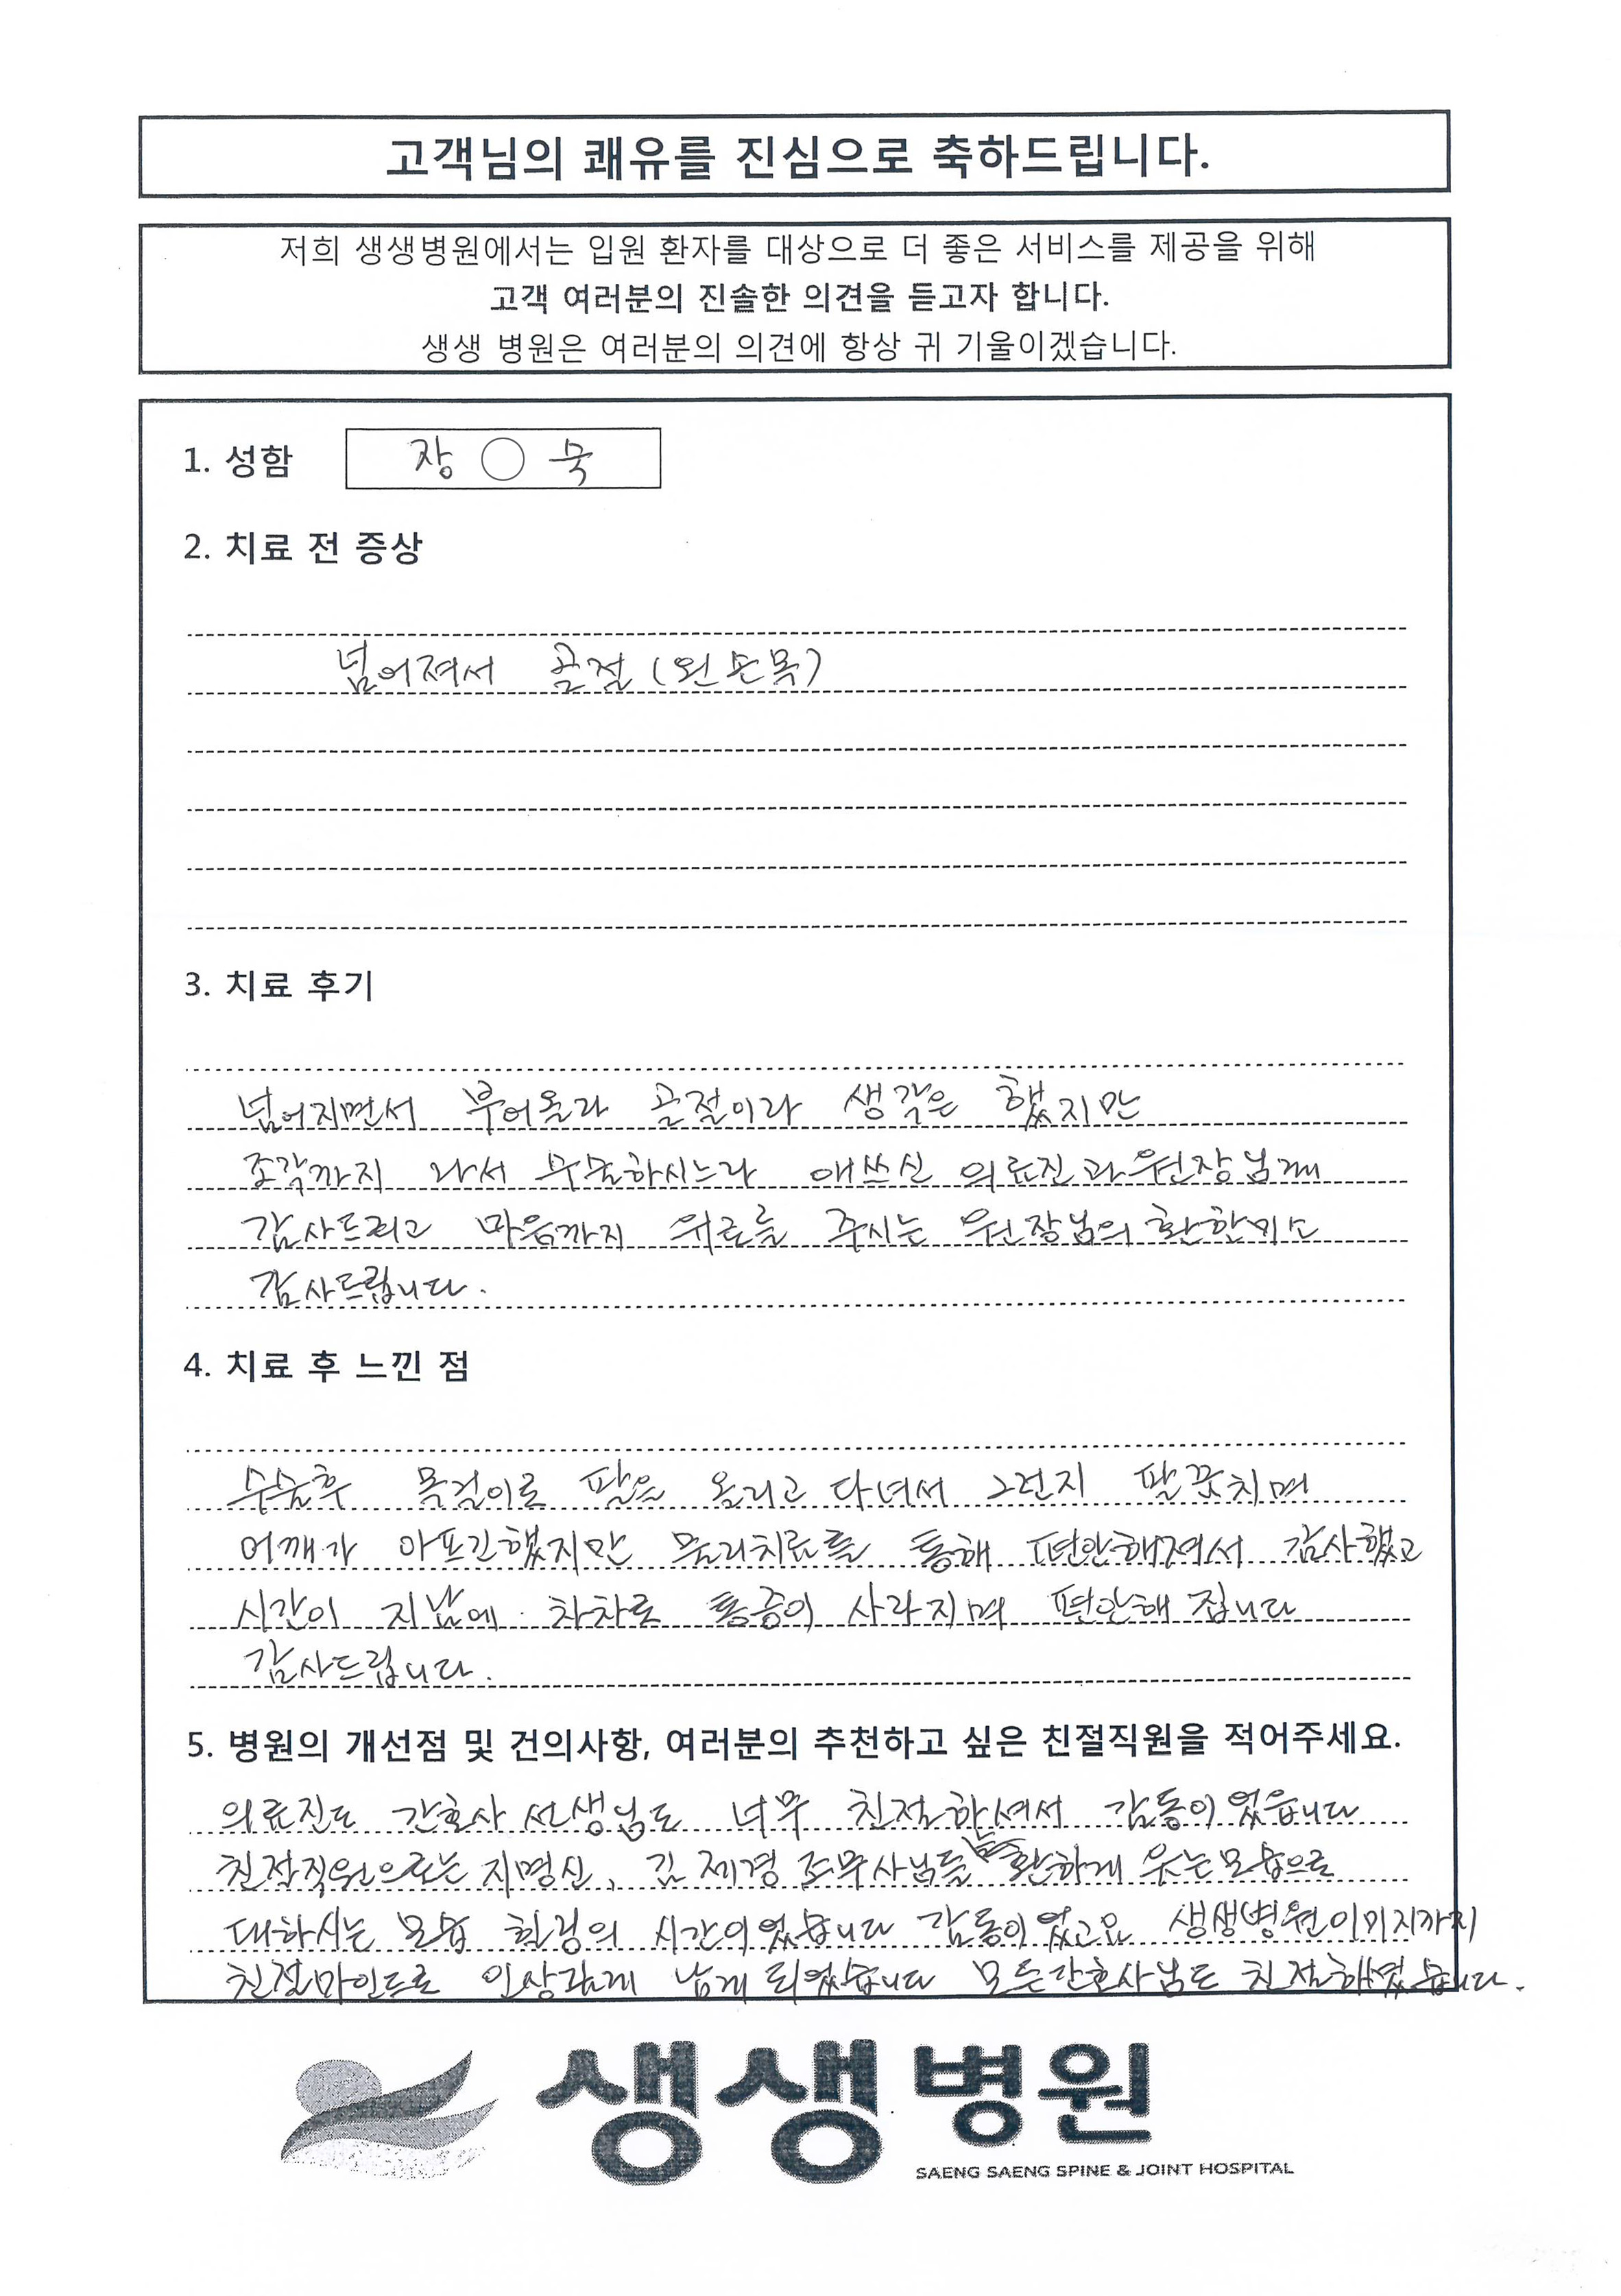 고객님의 쾌유를 진심으로 축하드립니다.
저희 생생병원에서는 입원 환자를 대상으로 더 좋은 서비스를 제공을 위해
고객 여러분의 진솔한 의견을 듣고자 합니다.
생생 병원은 여러분의 의견에 항상 귀 기울이겠습니다.
1. 성함 장 ○ 묵
2. 치료 전 증상
넘어져서 골절 (왼손목)
3. 치료 후기
넘어지면서 부어올라 골절이라 생각은 했지만
조각까지 나서 수술하시느라 애쓰신 의료진과 원장님께
감사드리고 마음까지 위로를 주시는 원장님의 환한미소
감사드립니다.
4. 치료 후 느낀 점
수술후 목걸이로 팔을 올리고 다녀서 그런지 팔꿈치며
어깨가 아프긴했지만 물리치료를 통해 편안해져서 감사했고
시간이 지남에 차차로 통증이 사라지며 편안해 집니다
감사드립니다.
5. 병원의 개선점 및 건의사항, 여러분의 추천하고 싶은 친절직원을 적어주세요.
의료진도 간호사 선생님도 너무 친절하셔서 감동이었읍니다
친절직원으로는 지명신, 김제경 조무사님들 늘 환하게 웃는모습으로
대하시는 모습 힐링의 시간이었습니다 감동이었고요 생생병원이미지까지
친절마인드로 인상깊게 남게 되었습니다 모든간호사님도 친절하였습니다.
생생병원
SAENG SAENG SPINE & JOINT HOSPITAL